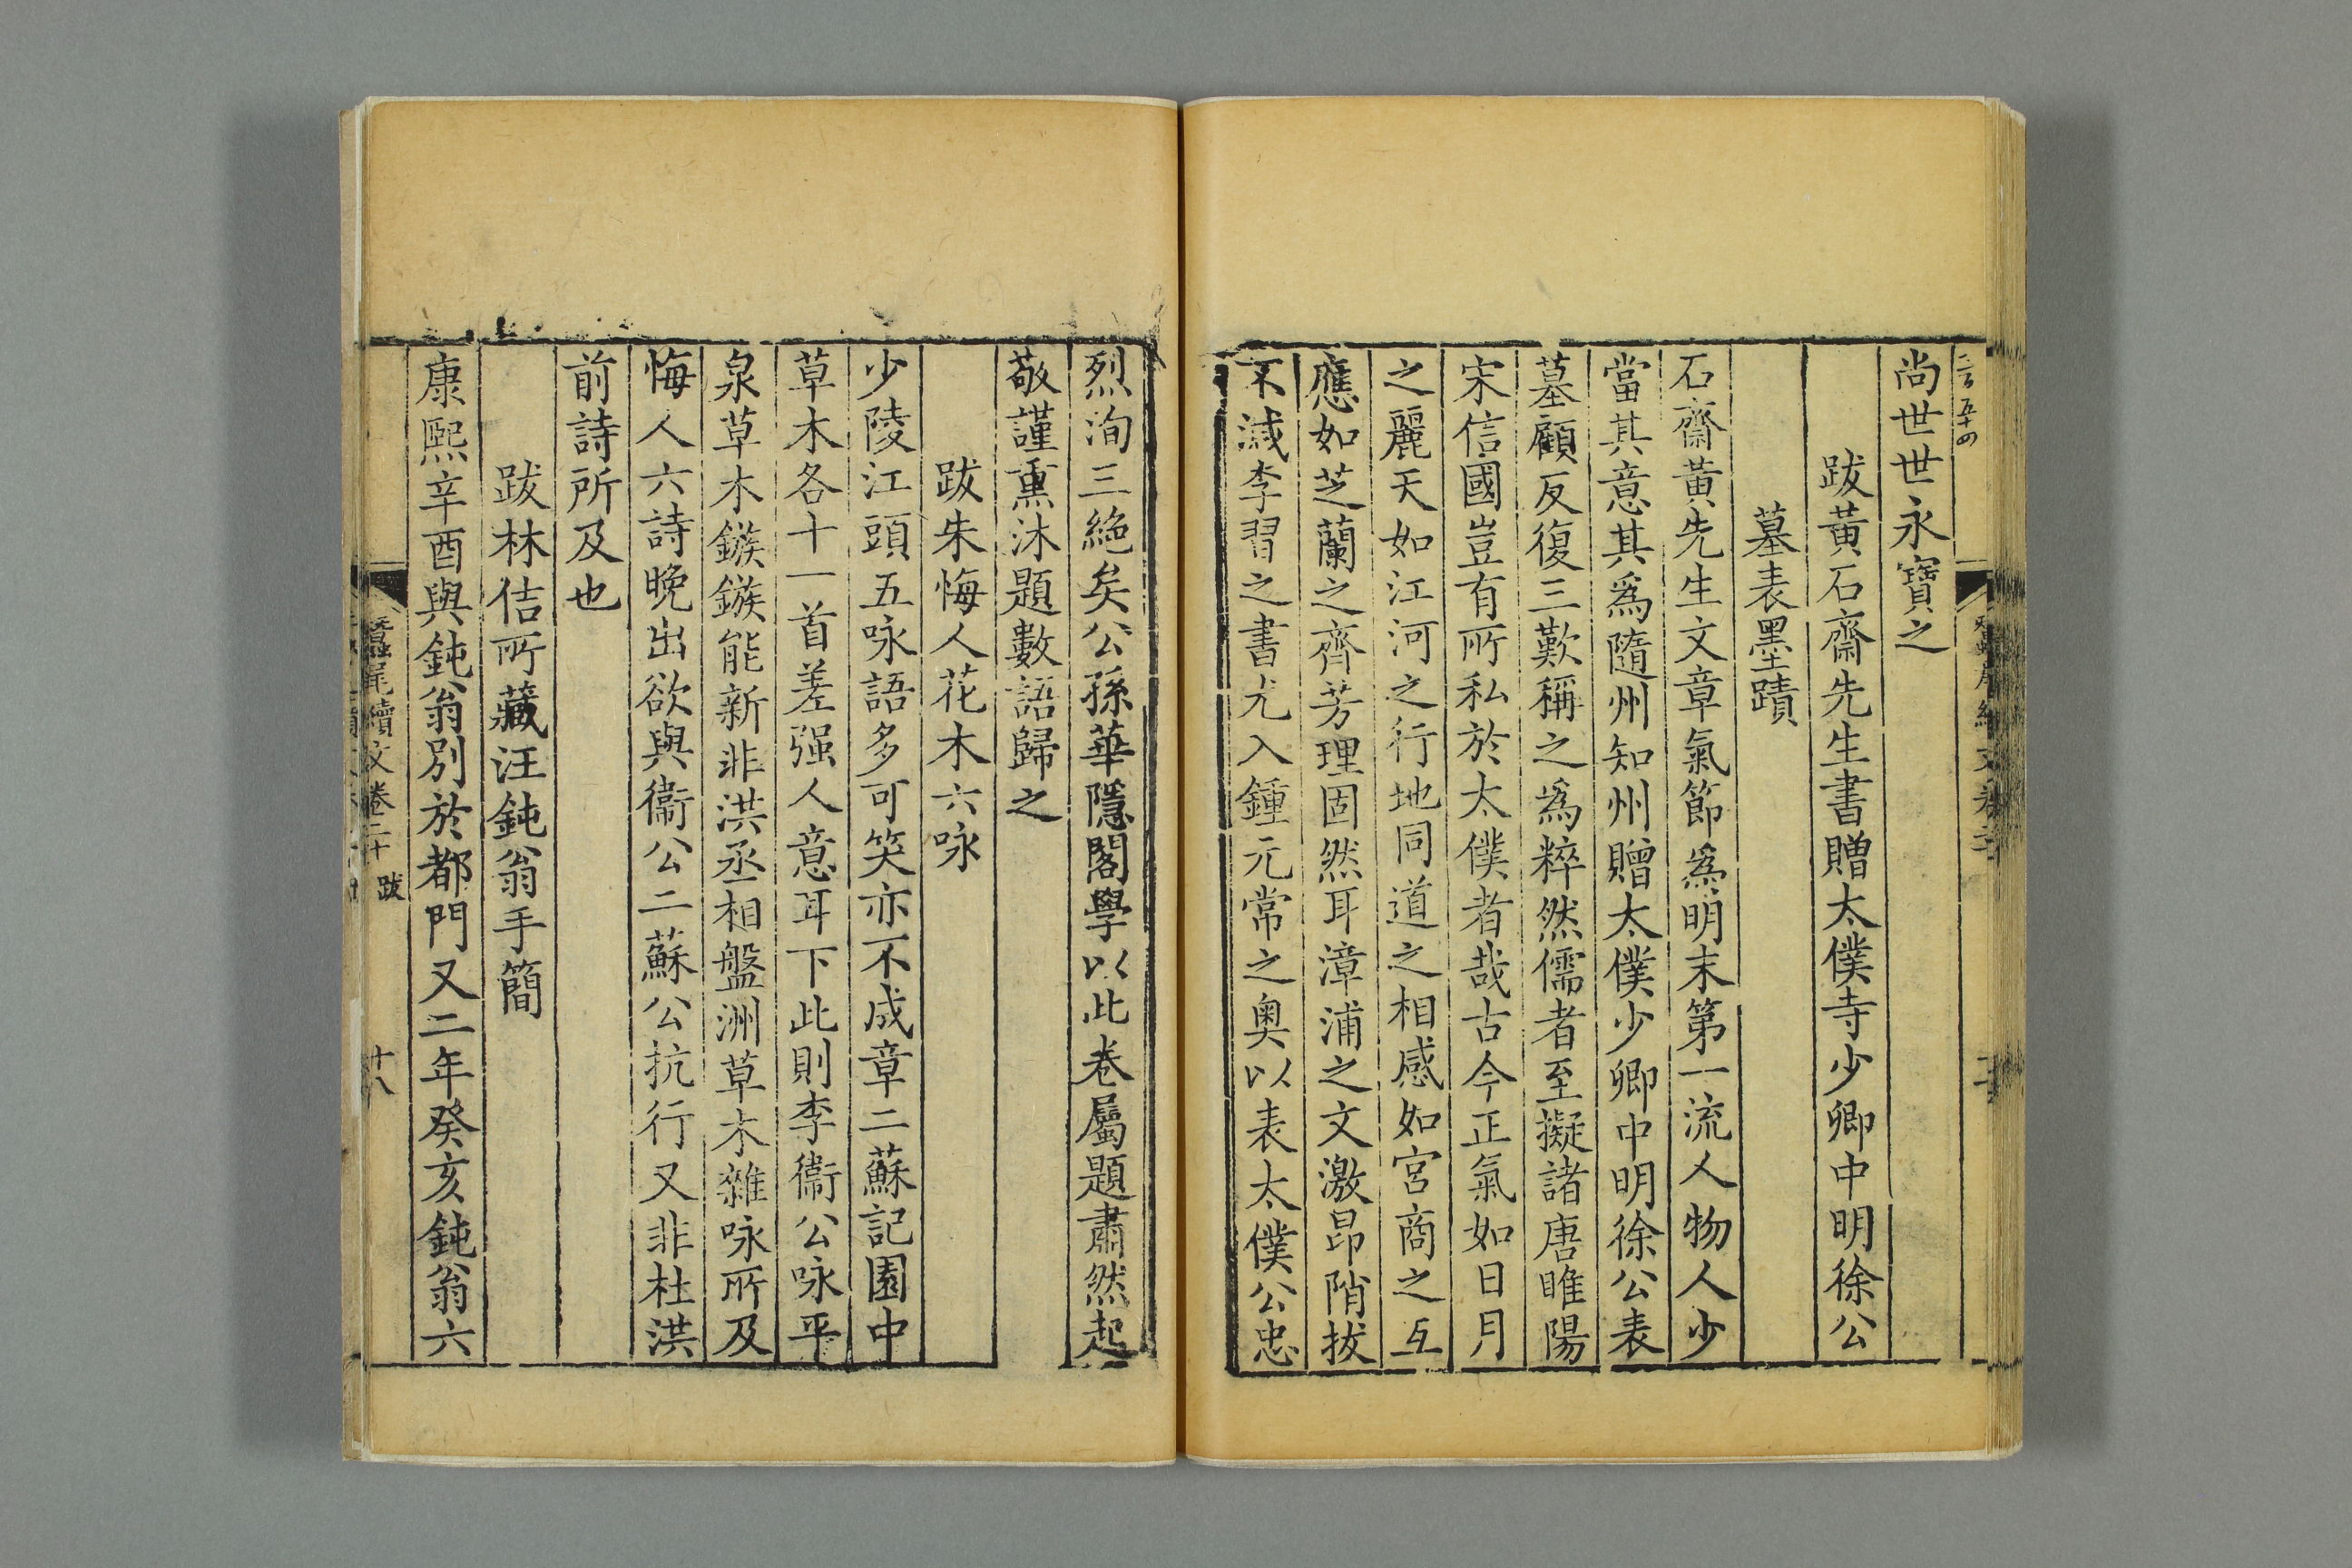 尚世世永寶之
跋黃石齋先生書贈太僕寺少卿中明徐公
墓表墨蹟
石齋黃先生文章氣節爲明末第一流人物人少
當其意其爲隨州知州贈太僕少卿中明徐公表
墓顧反復三歎稱之爲粹然儒者至擬諸唐睢陽
宋信國豈有所私於太僕者哉古今正氣如日月
之麗天如江河之行地同道之相感如宮商之互
應如芝蘭之齊芳理固然耳漳浦之文激昂陗拔
不減李習之書尤入鍾元常之奥以表太僕公忠
烈洵三絶矣公孫華隱閣學以此卷屬題肅然起
敬謹熏沐題數語歸之
跋朱悔人花木六咏
少陵江頭五咏語多可笑亦不成章二蘇記園中
草木各十一首差强人意耳下此則李衞公咏平
泉草木鏃鏃能新非洪丞相盤洲草木雜咏所及
悔人六詩晚出欲與衞公二蘇公抗行又非杜洪
前詩所及也
跋林佶所藏汪鈍翁手簡
康熙辛酉與鈍翁別於都門又二年癸亥鈍翁六
蠶尾續文卷二十 跋 十八